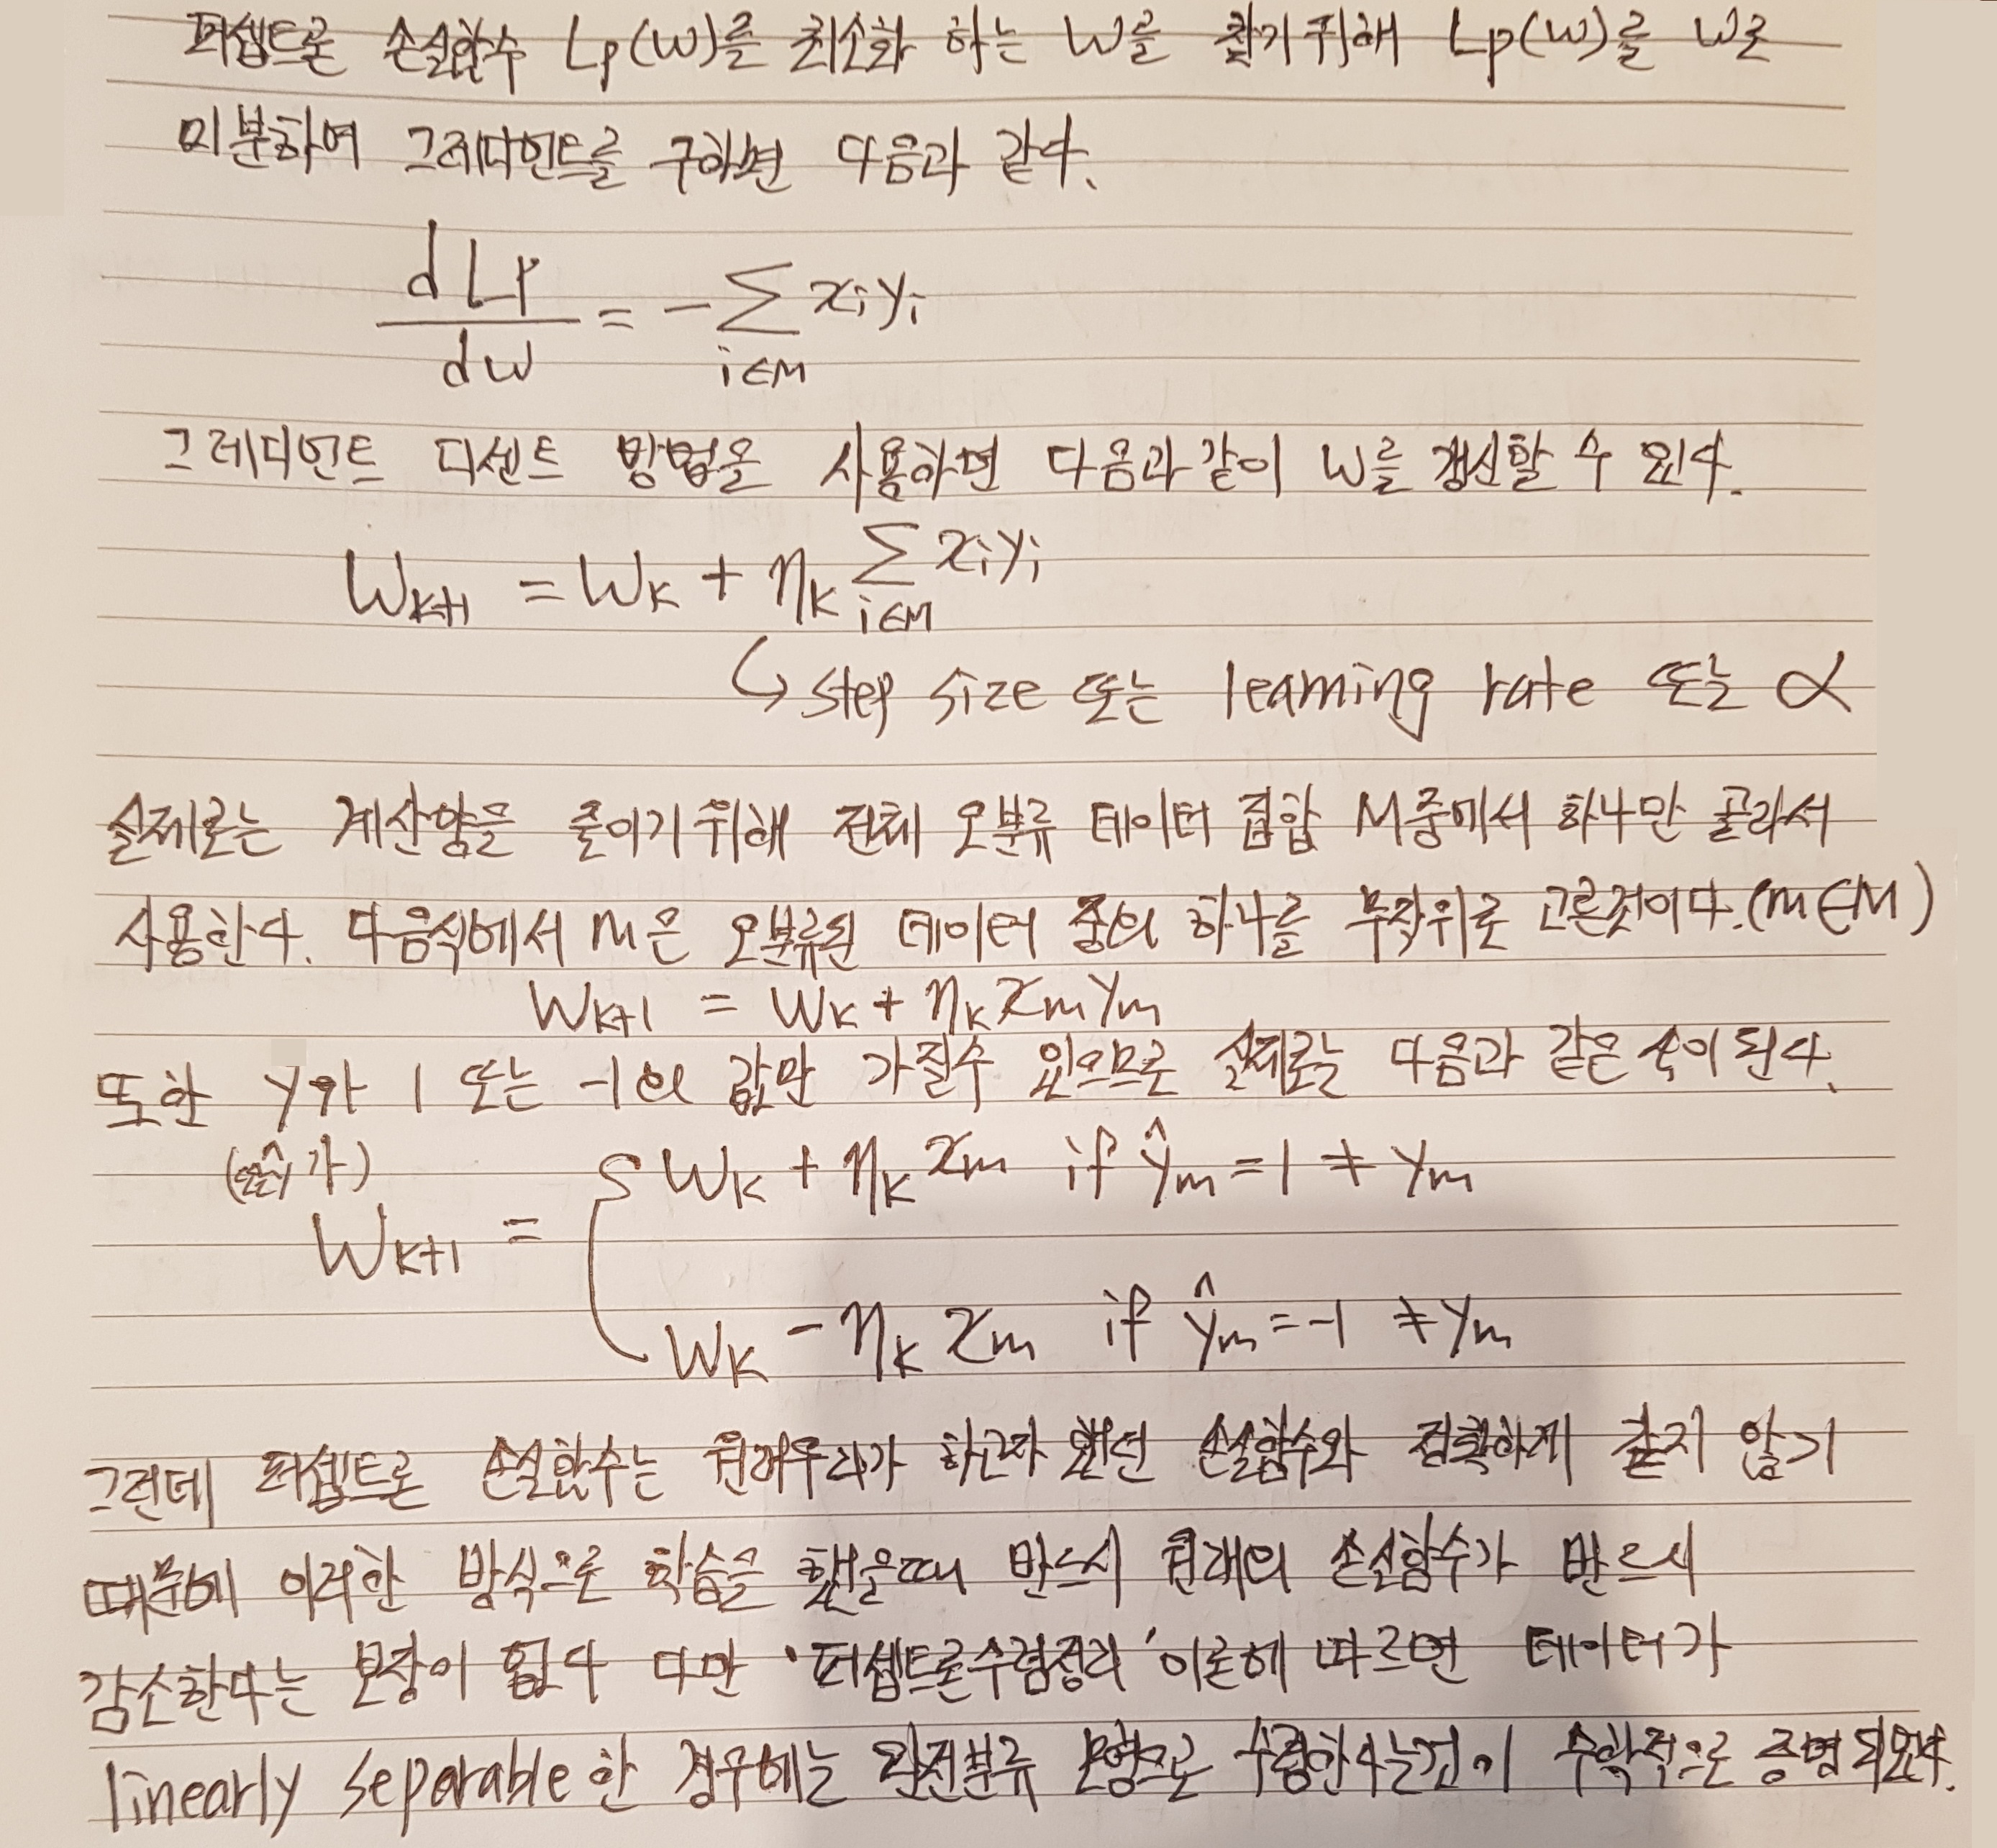 퍼셉트론 손실함수 Lp(w)를 최소화 하는 w를 찾기 위해 Lp(w)를 w로
미분하여 그레디언트를 구하면 다음과 같다.
dLp/dw = -∑_{i∈M} x_i y_i
그레디언트 디센트 방법을 사용하면 다음과 같이 w를 갱신할 수 있다.
w_{k+1} = w_k + η_k ∑_{i∈M} x_i y_i
↳ step size 또는 learning rate 또는 α
실제로는 계산량을 줄이기 위해 전체 오분류 데이터 집합 M중에서 하나만 골라서
사용한다. 다음식에서 m은 오분류된 데이터 중의 하나를 무작위로 고른것이다.(m∈M)
w_{k+1} = w_k + η_k x_m y_m
또한 y가 1 또는 -1의 값만 가질수 있으므로 실제로는 다음과 같은 식이 된다.
ŷ가)
w_{k+1} = { w_k + η_k x_m if ŷ_m = 1 ≠ y_m
w_k - η_k x_m if ŷ_m = -1 ≠ y_m
그런데 퍼셉트론 손실함수는 원래우리가 하고자 했던 손실함수와 정확하게 같지 않기
때문에 이러한 방식으로 학습을 했을때 반드시 원래의 손실함수가 반드시
감소한다는 보장이 없다 다만 '퍼셉트론수렴정리' 이론에 따르면 데이터가
linearly separable한 경우에는 완전분류 모형으로 수렴한다는것이 수학적으로 증명되있다.